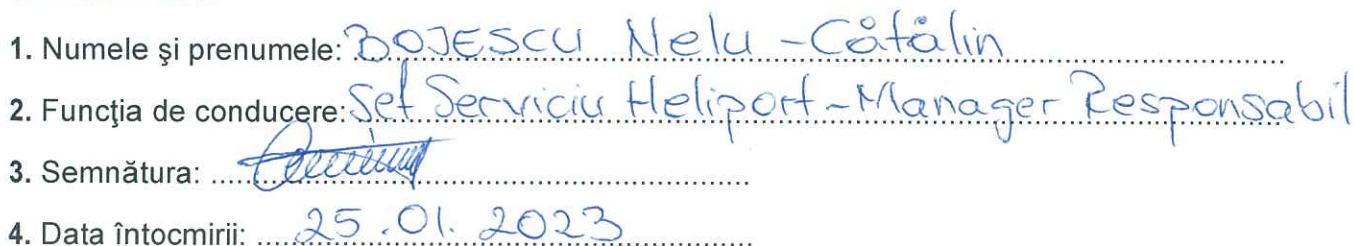 1. Numele şi prenumele: BOJESCU Nelu-Cătălin
2. Funcţia de conducere: Șef Serviciu Heliport-Manager Responsabil
3. Semnătura: ....
4. Data întocmirii: .... 25.01.2023